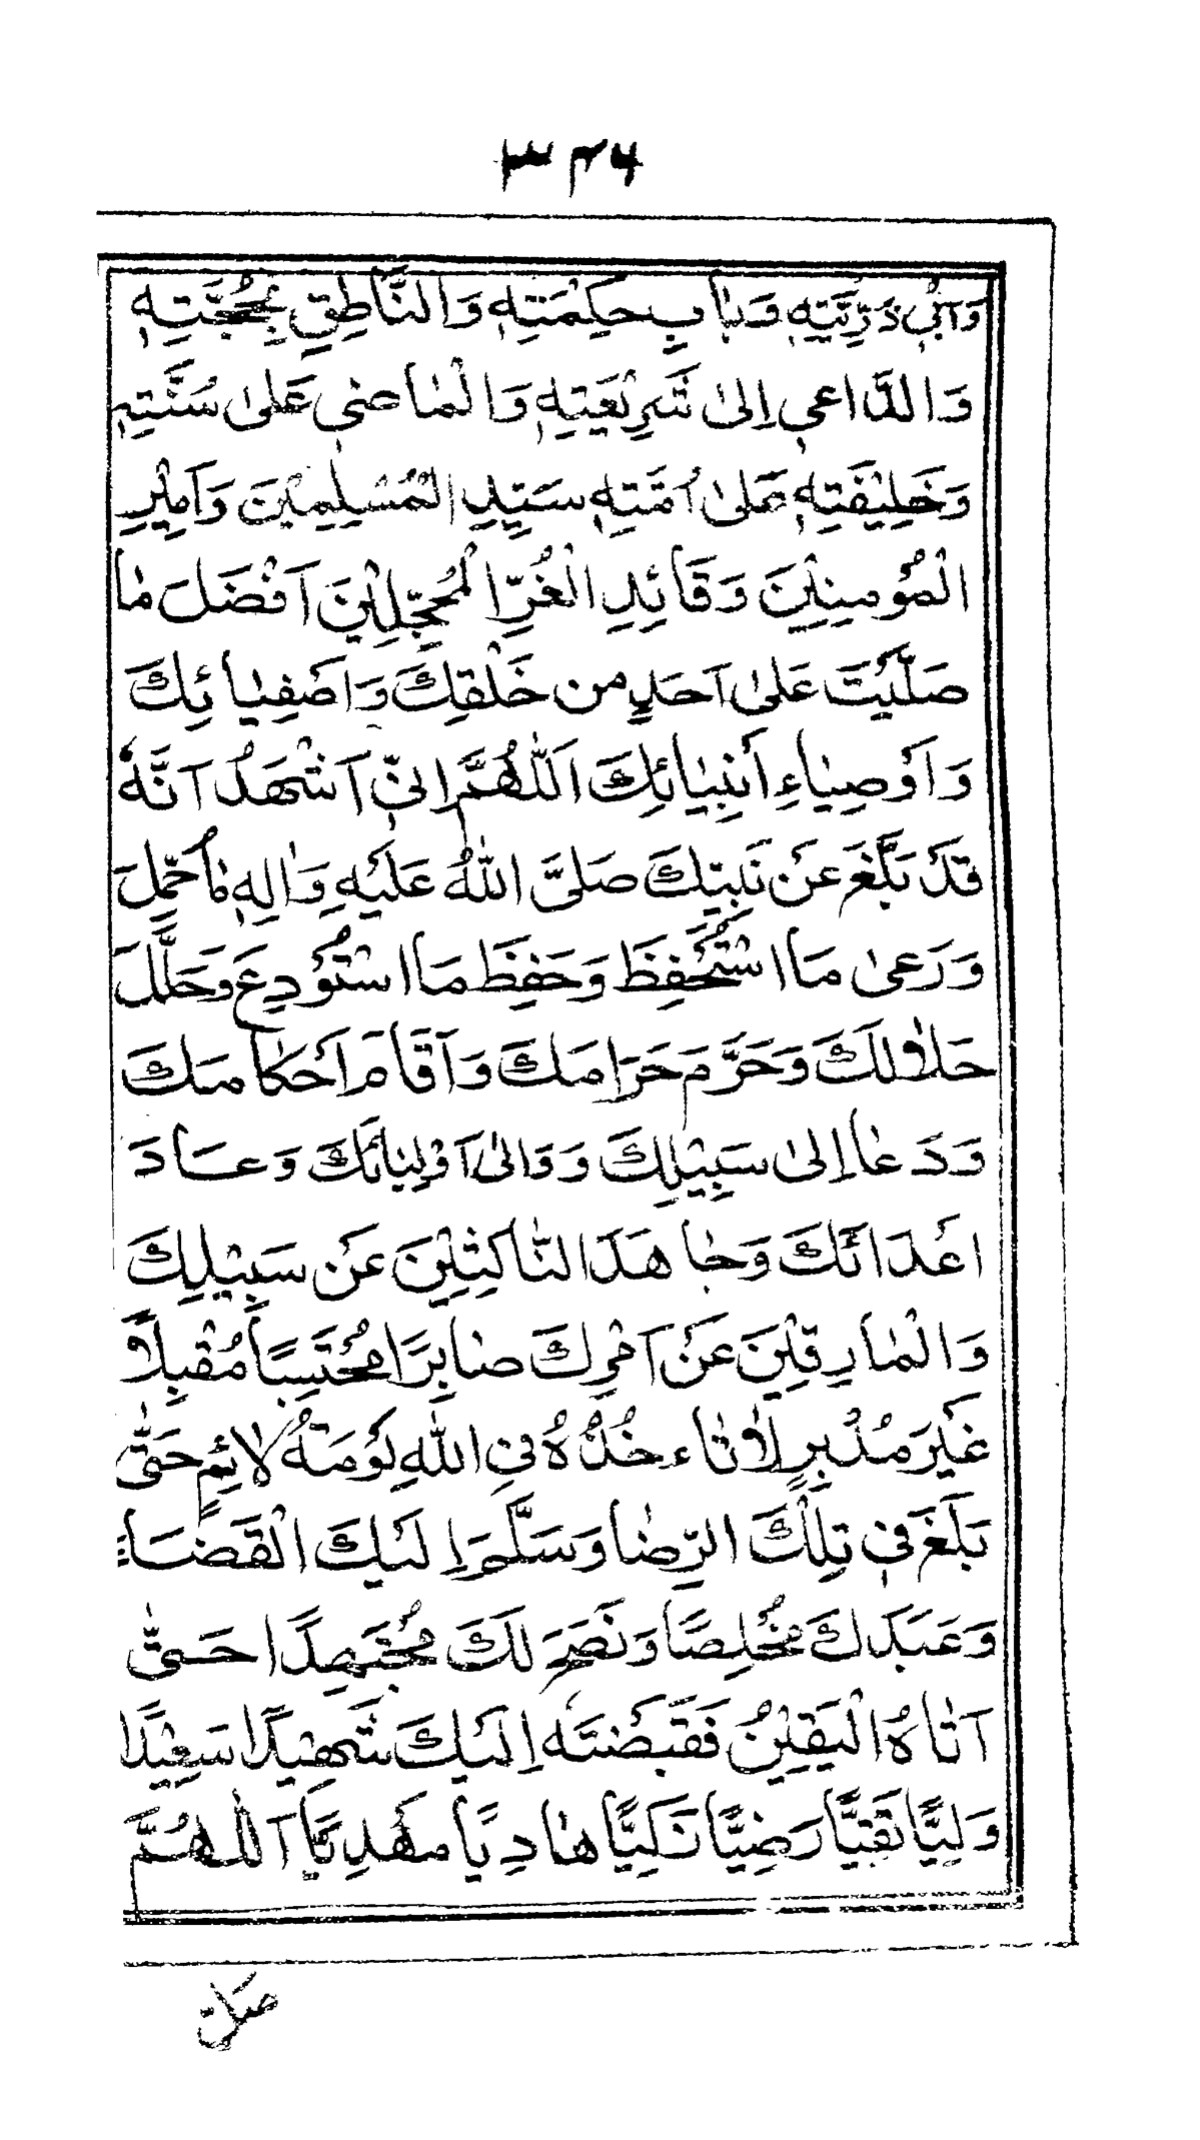 ٣٤٦
وَاَبِیْ ذُرِّيَّتِهٖ وَبَابِ حِكْمَتِهٖ وَالنَّاطِقِ بِحُجَّتِهٖ
وَالدَّاعِي اِلٰى شَرِيْعَتِهٖ وَالْمَاضِي عَلٰى سُنَّتِهٖ
وَخَلِيْفَتِهٖ عَلٰى اُمَّتِهٖ سَيِّدِ الْمُسْلِمِيْنَ وَاَمِيْرِ
الْمُؤْمِنِيْنَ وَقَائِدِ الْغُرِّ الْمُحَجَّلِيْنَ اَفْضَلَ مٰا
صَلَّيْتَ عَلٰى اَحَدٍ مِنْ خَلْقِكَ وَاَصْفِيٰائِكَ
وَاَوْصِيٰاءِ أَنْبِيٰائِكَ اَللّٰهُمَّ اِنِّي اَشْهَدُ اَنَّهٗ
قَدْ بَلَّغَ عَنْ نَبِيِّكَ صَلَّى اللّٰهُ عَلَيْهِ وَاٰلِهٖ مٰا حُمِّلَ
وَرَعىٰ مَا اسْتُحْفِظَ وَحَفِظَ مَا اسْتُوْدِعَ وَحَلَّلَ
حَلٰالَكَ وَحَرَّمَ حَرَامَكَ وَاَقَامَ اَحْكٰامَكَ
وَدَعٰا اِلىٰ سَبِيْلِكَ وَوَالىٰ اَوْلِيٰائَكَ وَعَادَ
اعْدَائَكَ وَجٰاهَدَ النّٰاكِثِيْنَ عَنْ سَبِيْلِكَ
وَالْمٰارِقِيْنَ عَنْ اَمْرِكَ صٰابِرًا مُحْتَسِبًا مُقْبِلًا
غَيْرَ مُدْبِرٍ لٰا تٰاءخُذُهُ فِي اللّٰهِ لَوْمَةُ لٰائِمٍ حَتّٰى
بَلَغَ فِي تِلْكَ الرِّضٰا وَسَلَّمَ اِلَيْكَ الْقَضَاءَ
وَعَبَدَكَ مُخْلِصًا وَنَصَحَ لَكَ مُجْتَهِدًا حَتّٰى
اَتٰاهُ الْيَقِيْنُ فَقَبَضْتَهٗ اِلَيْكَ شَهِيْدًا سَعِيْدًا
وَلِيًّا تَقِيًّا رَضِيًّا زَكِيًّا هٰادِيًا مَهْدِيًّا اَللّٰهُمَّ
صل